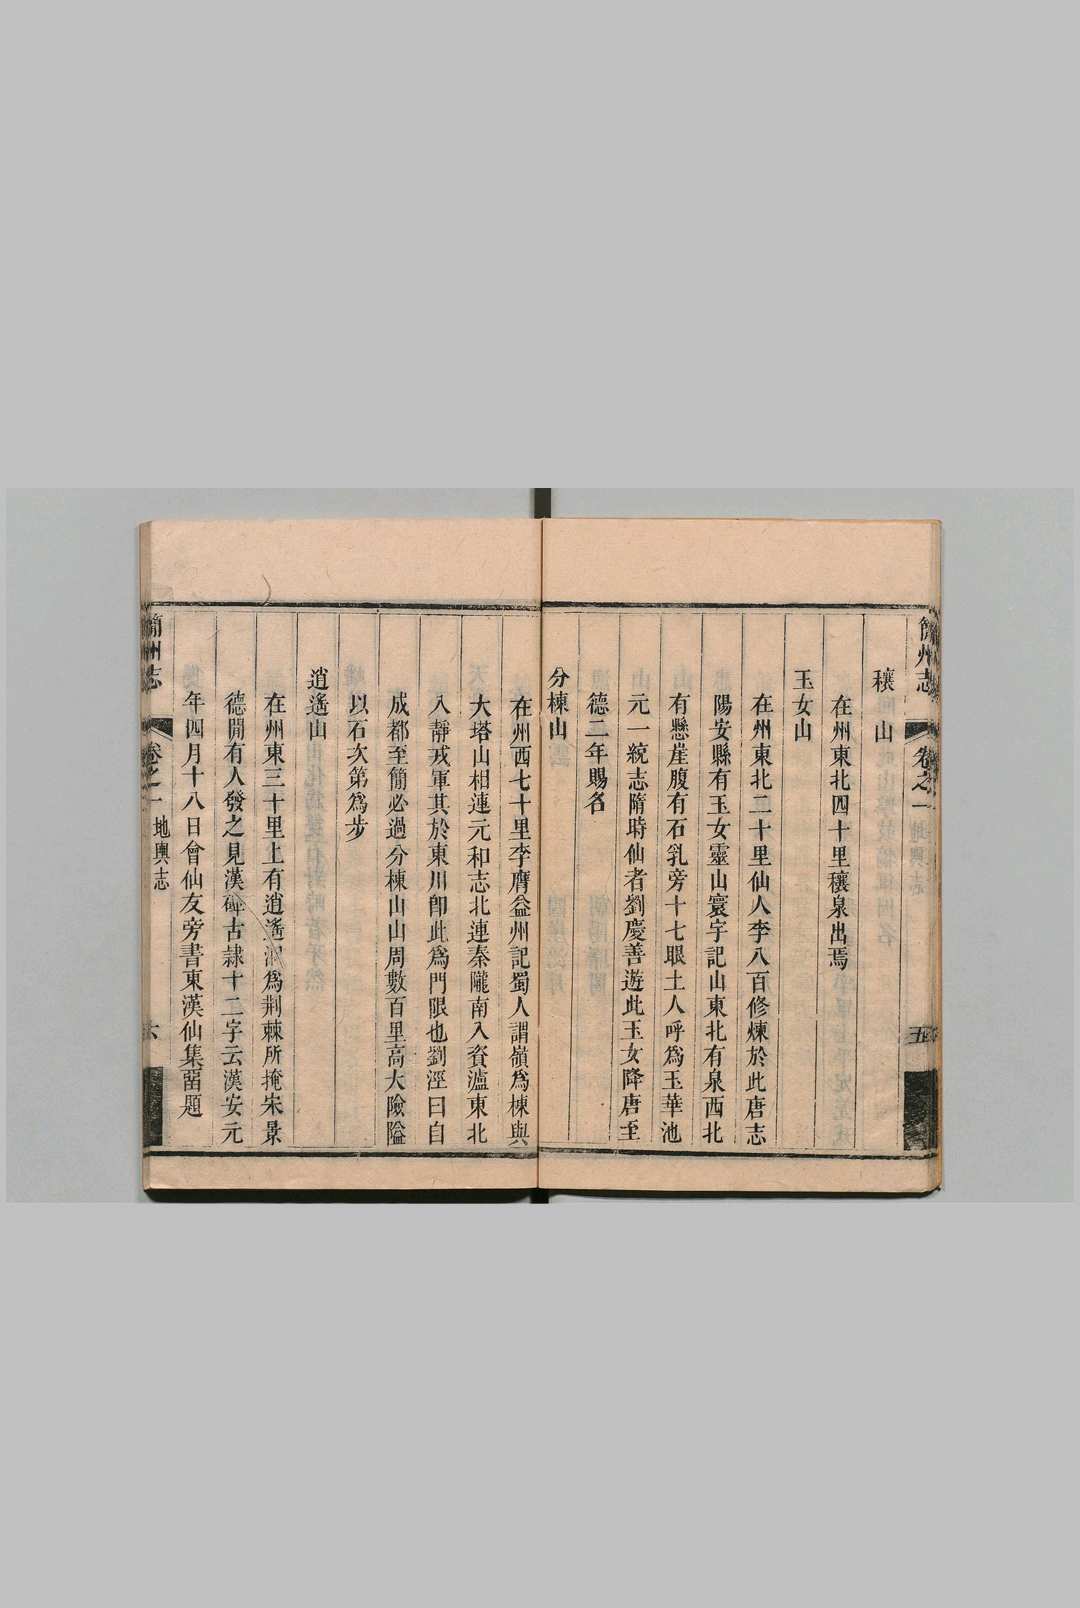 簡州志
卷之一
地輿志
五
穰山
在州東北四十里穰泉出焉
玉女山
在州東北二十里仙人李八百修煉於此唐志
陽安縣有玉女靈山寰宇記山東北有泉西北
有懸崖腹有石乳旁十七眼土人呼爲玉華池
元一統志隋時仙者劉慶善遊此玉女降唐至
德二年賜名
分棟山
在州西七十里李膺益州記蜀人謂嶺爲棟與
大塔山相連元和志北連秦隴南入資瀘東北
入靜戎軍其於東川卽此爲門限也劉涇曰自
成都至簡必過分棟山山周數百里高大險隘
以石次第爲步
逍遙山
在州東三十里上有逍遙洞爲荆棘所掩宋景
德閒有人發之見漢碑古隷十二字云漢安元
年四月十八日會仙友旁書東漢仙集畱題
簡州志
卷之一
地輿志
六